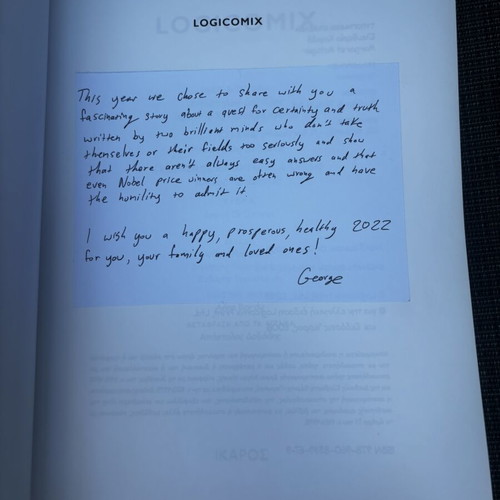 LOGICOMIX
This year we chose to share with you a
fascinating story about a quest for certainty and truth
written by two brilliant minds who don't take
themselves or their fields too seriously and show
that there aren't always easy answers and that
even Nobel price winners are often wrong and have
the humility to admit it.
I wish you a happy, prosperous, healthy 2022
for you, your family and loved ones!
George